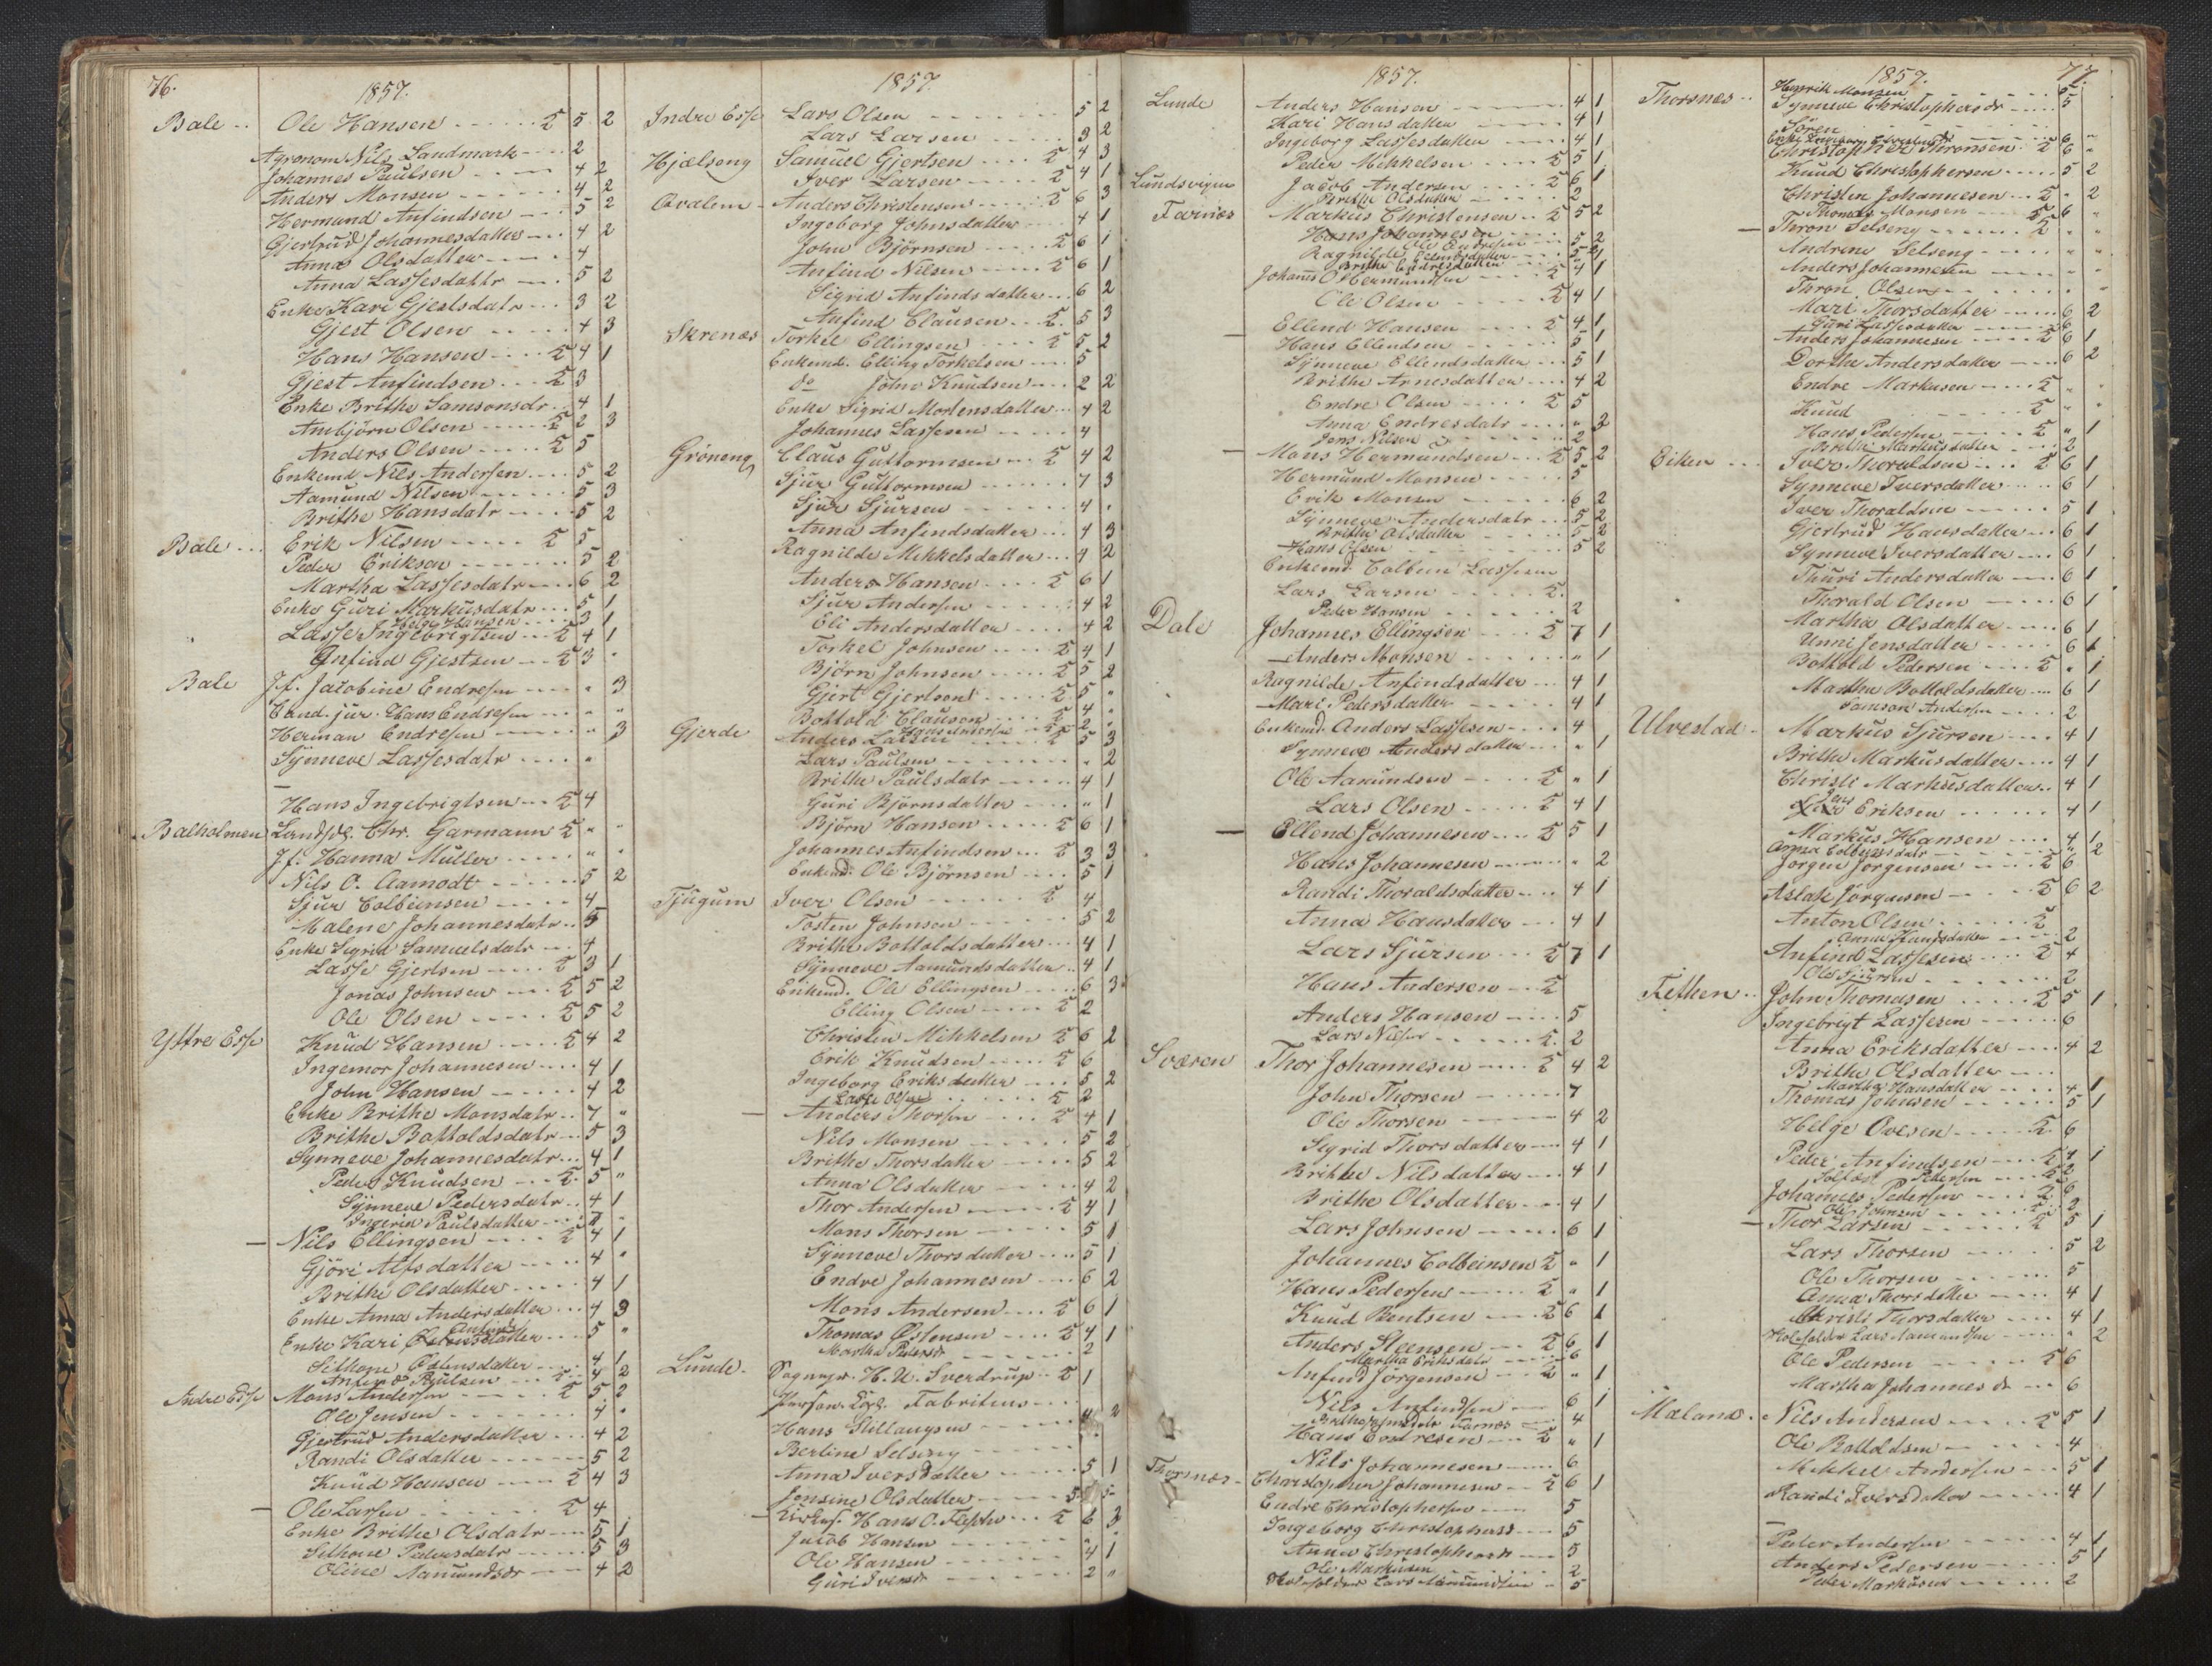 76.
1857.
Bale .. Ole Hansen ...... Σ 5 2
Agronom Nils Landmark ... 2
Johannes Paulsen .... 4 2
Anders Monsen ...... 4 2
Hermund Anfindsen ... 5 2
Gjertrud Johannesdatter ... 4 2
Anna Olsdatter .... 4
Anna Lassesdattr ... 5 2
Enke Kari Gjestsdatr ... 3 2
Gjest Olsen ..... 4 3
Hans Hansen .... Σ 4 1
Gjest Anfindsen ... Σ 3
Enke Brithe Samsonsdr .. 4 1
Ambjörn Olsen ..... Σ 2 3
Anders Olsen ..... Σ 5
Enkemd Nils Andersen ... 5 2
Aamund Nilsen ...... 5 3
Brithe Hansdatr ..... 5 2
Bale ... Erik Nilsen ..... Σ 5
Peder Erikson ....... 5 2
Martha Lassesdatr .... 6 2
Enke Guri Markusdatr ... 5 1
Helge Hansen .... 3 1
Lasse Ingebrigtsen ... Σ 4 1
Anfind Gjestsen ... Σ 3 "
Bale Jf. Jacobine Endresen .... " 3
Cand. jur. Hans Endresen ... " "
Herman Endresen ..... " 3
Synneve Lassesdatr .... "
Hans Ingebrigtsen ... Σ 4
Balholmen Landhdl. Chr. Garmann Σ " "
Jf. Hanna Müller ..... " "
Nils O. Aamodt ...... 5 2
Sjur Colbeinsen ..... 4
Malene Johannesdatr .. 5
Enke Sigrid Samuelsdatr ... 4
Lasse Gjertsen .... Σ 3 1
Jonas Johnsen .... Σ 5 2
Ole Olsen ..... Σ 5 2
Yttre Esse Knud Hansen ..... Σ 4 2
Ingemor Johannesen .... 4 1
John Hansen ...... 4 2
Enke Brithe Monsdatr .. 7 "
Brithe Bottoldsdatr ... 5 3
Synneve Johannesdatr ... 4 1
Peder Knudsen ... Σ 5 "
Synneve Pedersdatr .. 4 1
Ingerin Paulsdatter ...
— Nils Ellingsen .... Σ 4 1
Gjöri Alfsdatter ..... 4 "
Brithe Olsdatter ..... 4 1
Enke Anna Andersdatter ... 4 3
Enke Kari ... 5 "
Silhone ... 4 1
Anfind Paulsen ... Σ 4 2
Indre Esse Mons Andersen .... Σ 5 2
Ole Jensen ....... 4 "
Gjertrud Andersdatter ... 4 2
Randi Olsdatter ...... 5 2
Knud Hansen .... Σ 4 3
— Ole Larsen ...... Σ 4
Enke Brithe Olsdatr .... 5 1
Silhone Pedersdatr .... 5 3
Oline Aamundsdr .... 4 2
1857.
Indre Esse Lars Olsen ........ 5 2
Lars Larsen ....... 3 2
Hjælseng Samuel Gjertsen .... Σ 4 3
Iver Larsen ..... Σ 4 1
Qvalem - Anders Christensen .... Σ 6 3
Ingeborg Johnsdatter .... 4 1
John Björnsen .... Σ 6 1
Anfind Nilsen .... Σ 6 1
Sigrid Anfindsdatter ... 6 2
Anfind Clausen .. Σ. 5 3
Skrenæs Torkel Ellingsen .... Σ 5 2
Enkemd. Elling Torkelsen ... 5
do John Knudsen .... 2 2
Enke Sigrid Mortensdatter ... 4 2
Johannes Lassesen ..... 4
Gröneng Claus Guttormsen ... Σ 4 2
Sjur Guttormsen ...... 7 3
Sjur Sjursen ...... 4 .
Anna Anfindsdatter ... 4 3
Ragnilde Mikkelsdatter ... 4 2
Anders Hansen .... Σ 6 1
Sjur Andersen ...... 4 2
Eli Andersdatter .... 4 2
Torkel Johnsen .... Σ 4 1
Björn Johnsen ..... Σ 5 2
Gjert Gjertsen ..... Σ 5 "
Bottold Clausen .... Σ 4 "
Hans Andersen ... Σ 2 "
Gjerde Anders Larsen .... Σ 5 3
Lars Paulsen ........ " 2
Brithe Paulsdatr ..... 4 1
Guri Björnsdatter .... " 1
Björn Hansen .... Σ 6 1
Johannes Anfindsen .. Σ 3 3
Enkemd: Ole Björnsen .... 5 1
Tjugum Iver Olsen ...... Σ 4
Tosten Johnsen ...... 5 2
Brithe Bottoldsdatter ... 4 1
Synneve Aamundsdatter .. 4 1
Enkemd. Ole Ellingsen .... 6 3
Elling Olsen .... Σ 2
Christen Mikkelsen Σ 6 2
Erik Knudsen .... Σ 6
Ingeborg Eriksdatter .... 5 2
Lasse Olsen ....... Σ 2
— Anders Thorsen .... Σ 4 1
Nils Monsen ...... 5 2
Brithe Thorsdatter .... 5 2
Anna Olsdatter ..... 4 2
Thor Andersen .... Σ 4 1
Mons Thorsen ..... 5 1
Synneve Thorsdatter .... 5 1
Endre Johannesen ... 6 2
Mons Andersen .... Σ 6 1
Thomas Östensen .... Σ 4 1
Martha Pedersdr ...... 2
Lunde. Sognepr. H. U. Sverdrup .. Σ 1
Fabritius ...
Hans Gullaugsen ...... 2
Berline Selseng ......
Anna Iversdatter ..... 5 1
Jensine Olsdatter ..... 5
— Hans O. ... Σ 6 3
Jacob Hansen ...... " "
Ole Hansen ....... 4 1
Guri Iversdr ...... 2 "
1857.
Lunde Anders Hansen ...... 4 1
Kari Hansdatter ..... 4 1
Ingeborg Lassesdatter .... 4 1
Peder Mikkelsen .... Σ 5 1
Lundsvigen Jacob Andersen .... Σ 6 1
Brithe Olsdatter ..... 2
Farnæs Markus Christensen .. Σ 5 2
Hans Johannesen ..... 5 2
Ole Endresen
Ragnilde Ellendsdatter ... 5 2
Brithe Endresdatter
Johannes O Hermundsen ... Σ 4 1
Ole Olsen ..... Σ 4 1
— Ellend Hansen .... Σ 4 1
Hans Ellendsen ..... 5 1
Synneve Ellendsdatter ... 5 1
Brithe Arnesdatter .... 4 2
Endre Olsen ..... Σ 5
Anna Endresdatr .... " 2
Jens Nilsen ....... 2
— Mons Hermundsen ... Σ 5 2
Hermund Monsen ..... 5
Erik Monsen ...... 6 2
Synneve Andersdatr ... 5 2
Brithe Olsdatter ..... 5 2
Hans Olsen ......... 5 2
Enkemd Colbein Lassesen
Lars Larsen ...... Σ.
Peder Hansen ...... 2
Dale Johannes Ellingsen .... Σ 7 1
Anders Monsen ...... " 1
Ragnilde Anfindsdatter ... 4 1
Mari Pedersdatter ..... 4 1
Enkemd. Anders Lassesen ... 4
Synneve Andersdatter ... " 1
Ole Aamundsen .... Σ " 1
Lars Olsen ..... Σ 4 1
— Ellend Johannesen ... Σ 5 1
Hans Johannesen ...... " 2
Randi Thoraldsdatter .. 4 1
Anna Hansdatter ... 4 1
Lars Sjursen ... Σ 7 1
Hans Andersen ... Σ
Anders Hansen .... 5
Lars Nilsen ....... Σ. 2
Sværen Thor Johannesen .... Σ 4 2
John Thorsen ..... 7
Ole Thorsen ...... 4 2
Sigrid Thorsdatter ... 4 1
Brithe Nilsdatter ... 4 1
Brithe Olsdatter ... 4 1
Lars Johnsen ..... 6 1
Johannes Colbeinsen Σ " 1
Hans Pedersen ..... Σ " 1
Knud Bentsen ... Σ 6 1
Anders Steensen ... Σ 6 1
Martha Eriksdatr ..... 6
Anfind Jörgensen ... Σ " 1
Nils Anfindsen .... 6 1
Farnæs .. 4
Hans Endresen ... Σ " 1
Nils Johannesen .... 6
Thorsnæs - Christopher Johannesen .. Σ 6 1
Endre Christophersen ... 5
Ingeborg Christophersd .... 5
Anna Christophersdr .... 5
Ole Markusen ...... 2
Lars Aamundsen .. 5
77
1857.
Henrik Monsen ...... 5
Thorsnes .. Synneve Christophersdr ..... 5
Sören ......
Christopher Thronsen .. Σ 6 "
Knud Christophersen ..... 5 2
Christen Johannesen ... Σ . 2
Thomas Monsen ..... Σ 6 "
— Thron Selseng ...... Σ " "
Andrine Selseng ..... " "
Anders Johannesen .... " "
Thron Olsen ....... " "
Mari Thorsdatter .... 6 2
Guri Lassesdatter ..... 6
Anders Johannesen .... Σ 6 1
Dorthe Andersdatter .... 6 2
Endre Markusen .... Σ " "
Knud ...... Σ " "
Hans Pedersen .... Σ " 1
Brithe Markusdatter ... 2
Eiken ... Iver Thoraldsen .... Σ 6 1
Synneve Iversdatter .... 6 1
Iver Thoraldsen ..... 5 1
Gjertrud Hansdatter ... 6 1
Synneve Iversdatter ... 6 1
Thuri Andersdatter ... 6 1
Thorald Olsen ..... 6 1
Martha Olsdatter .... 6 1
Unni Jensdatter ..... 6 1
Bottold Pedersen .... Σ " 1
Martha Bottoldsdatter ... 6 1
Samson Andersen .... 2
Ulvestad - Markus Sjursen .... 4 1
Brithe Markusdatter .... 4 1
Christi Markusdatter .. 4 1
Jens Eriksen ...... 4 1
Markus Hansen .... 4 1
Anna Colbeinsdatr ..... " 2
Jörgen Jörgensen .... Σ 6
Aslak Jörgensen ... Σ 6 2
Anton Olsen ...... Σ
Anna Hansdatter .... 2
Anfind Lassesen .... Σ 4
Ole Sjursen ....... 2
Fethen .. John Thomasen ..... Σ 5 1
Ingebrigt Lassesen ..... 6
Anna Eriksdatter .... 4 2
Brithe Olsdatter ....
Martha Hansdatter .... 4 1
Thomas Johnsen ...... 5 1
Helge Ovesen ..... Σ. 6
Peder Anfindsen .... Σ 4 1
Pedersen ... Σ 2
Johannes Pedersen .... Σ 6
Ole Johnsen ..... Σ 2
— Thor Larsen ...... Σ 5 1
Lars Thorsen ...... 5 2
Ole Thorsen ...... 5
Anna Thorsdatter .... 4 1
Christi Thorsdatter .... 4 1
Lars Aamundsen ..... " 2
Ole Pedersen ..... Σ 6
Martha Johannesdr ... 6
Maland. Nils Andersen ..... Σ 5 1
Ole Bottoldsen ..... 4
Mikkel Andersen .... 5 1
Randi Iversdatter .... 4 1
Peder Andersen ..... 4 1
Anders Pedersen .... 5 1
Peder Markusen ...... 2